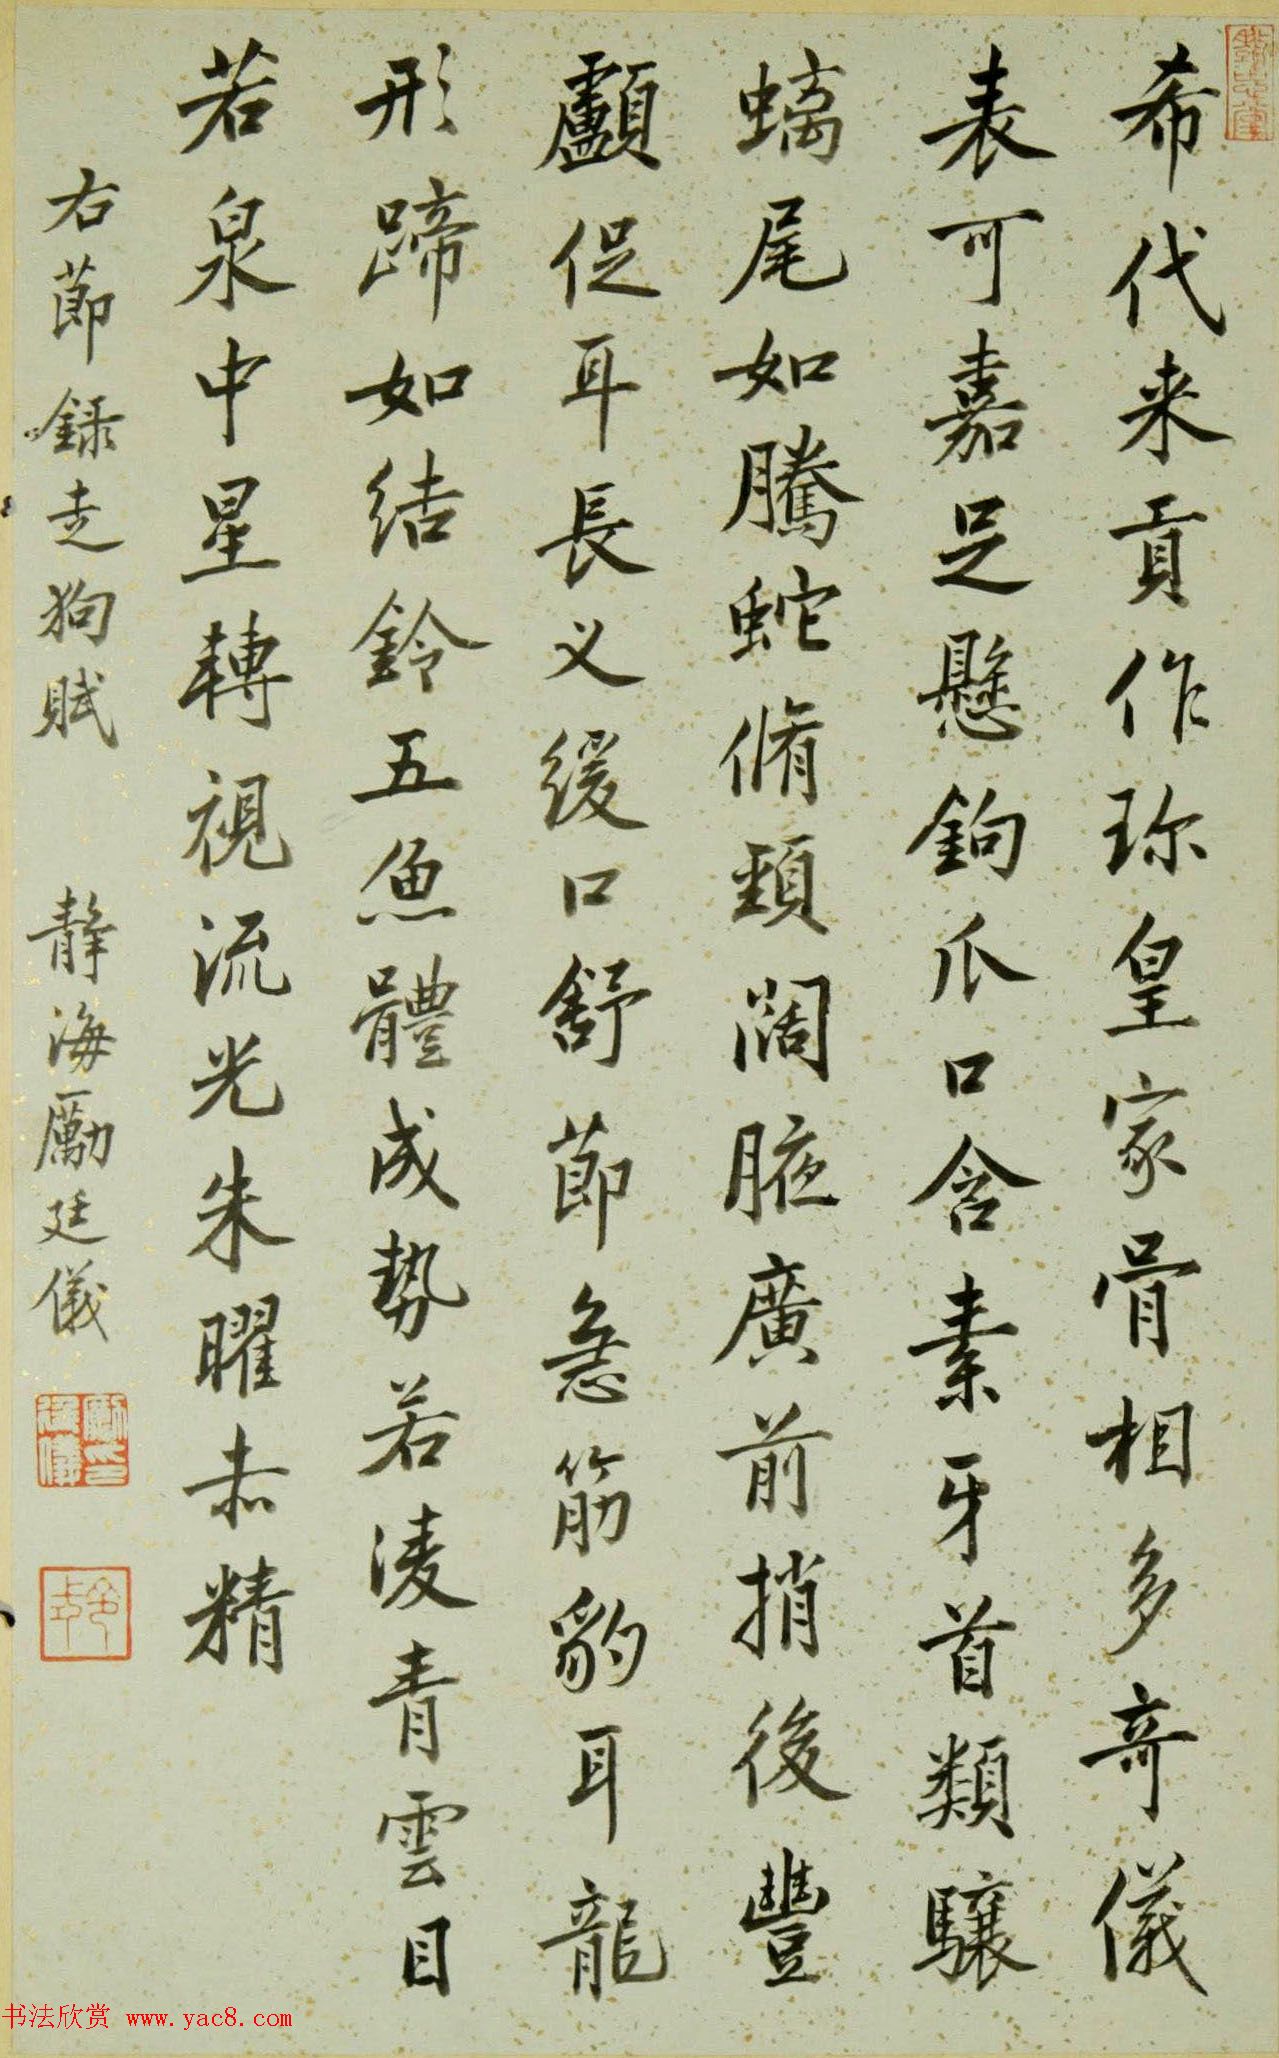 希代来貢作珎皇家骨相多奇儀
表可嘉足懸鉤爪口含素牙首類驤
螭尾如騰蛇脩頸闊腋廣前捎後豐
顱促耳長义緩口舒莭急筋豹耳龍
形蹄如結鈴五魚體成勢若淩青雲目
若泉中星轉視流光朱曜赤精
右莭録走狗賦 靜海勵廷儀
书法欣赏 www.yac8.com